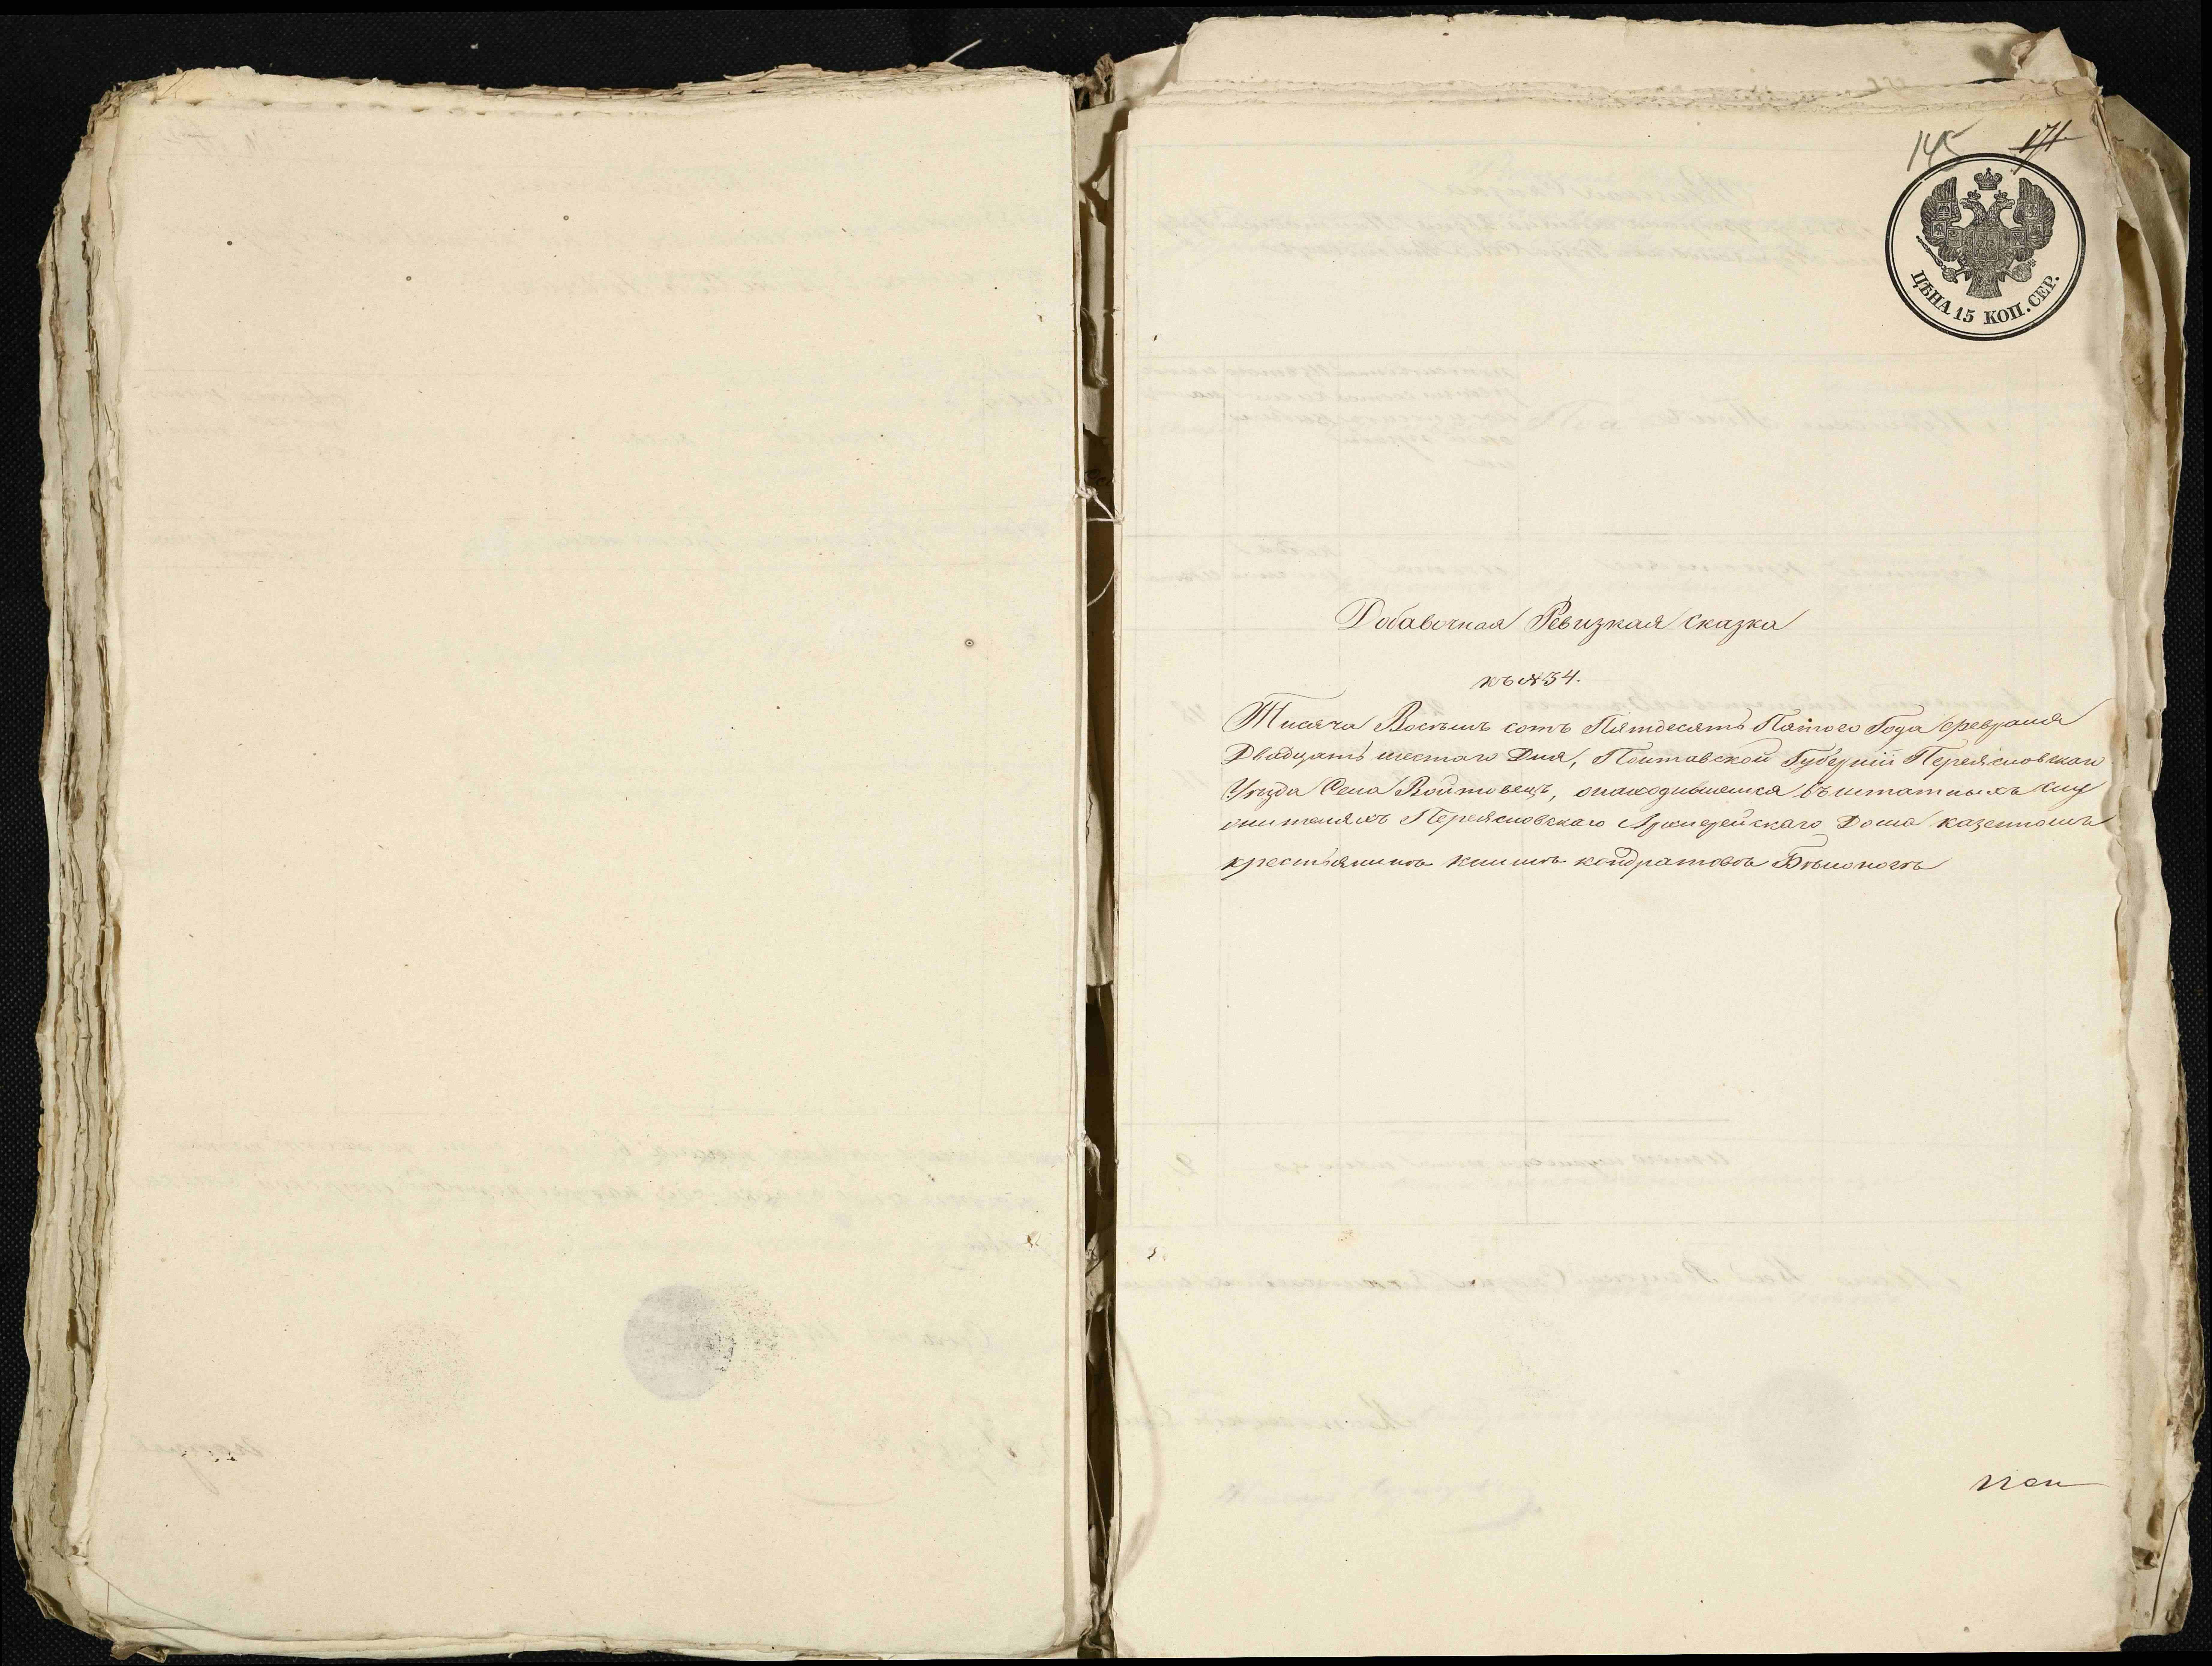 145 171
ЦѢНА 15 КОП. СЕР.
Добавочная Ревизкая Сказка
къ № 34.
Тисяча Восемь сотъ Пятдесять Пятого Года февраля
Двадцать шестаго Дня, Полтавской Губерніи Переясловскаго
Уѣзда Села Войтовецъ, о находившемся въ штатныхъ слу
жителяхъ Переясловскаго Архиерейскаго Дома казенномъ
крестьянинѣ Климѣ Кондратовѣ Бѣлоногѣ